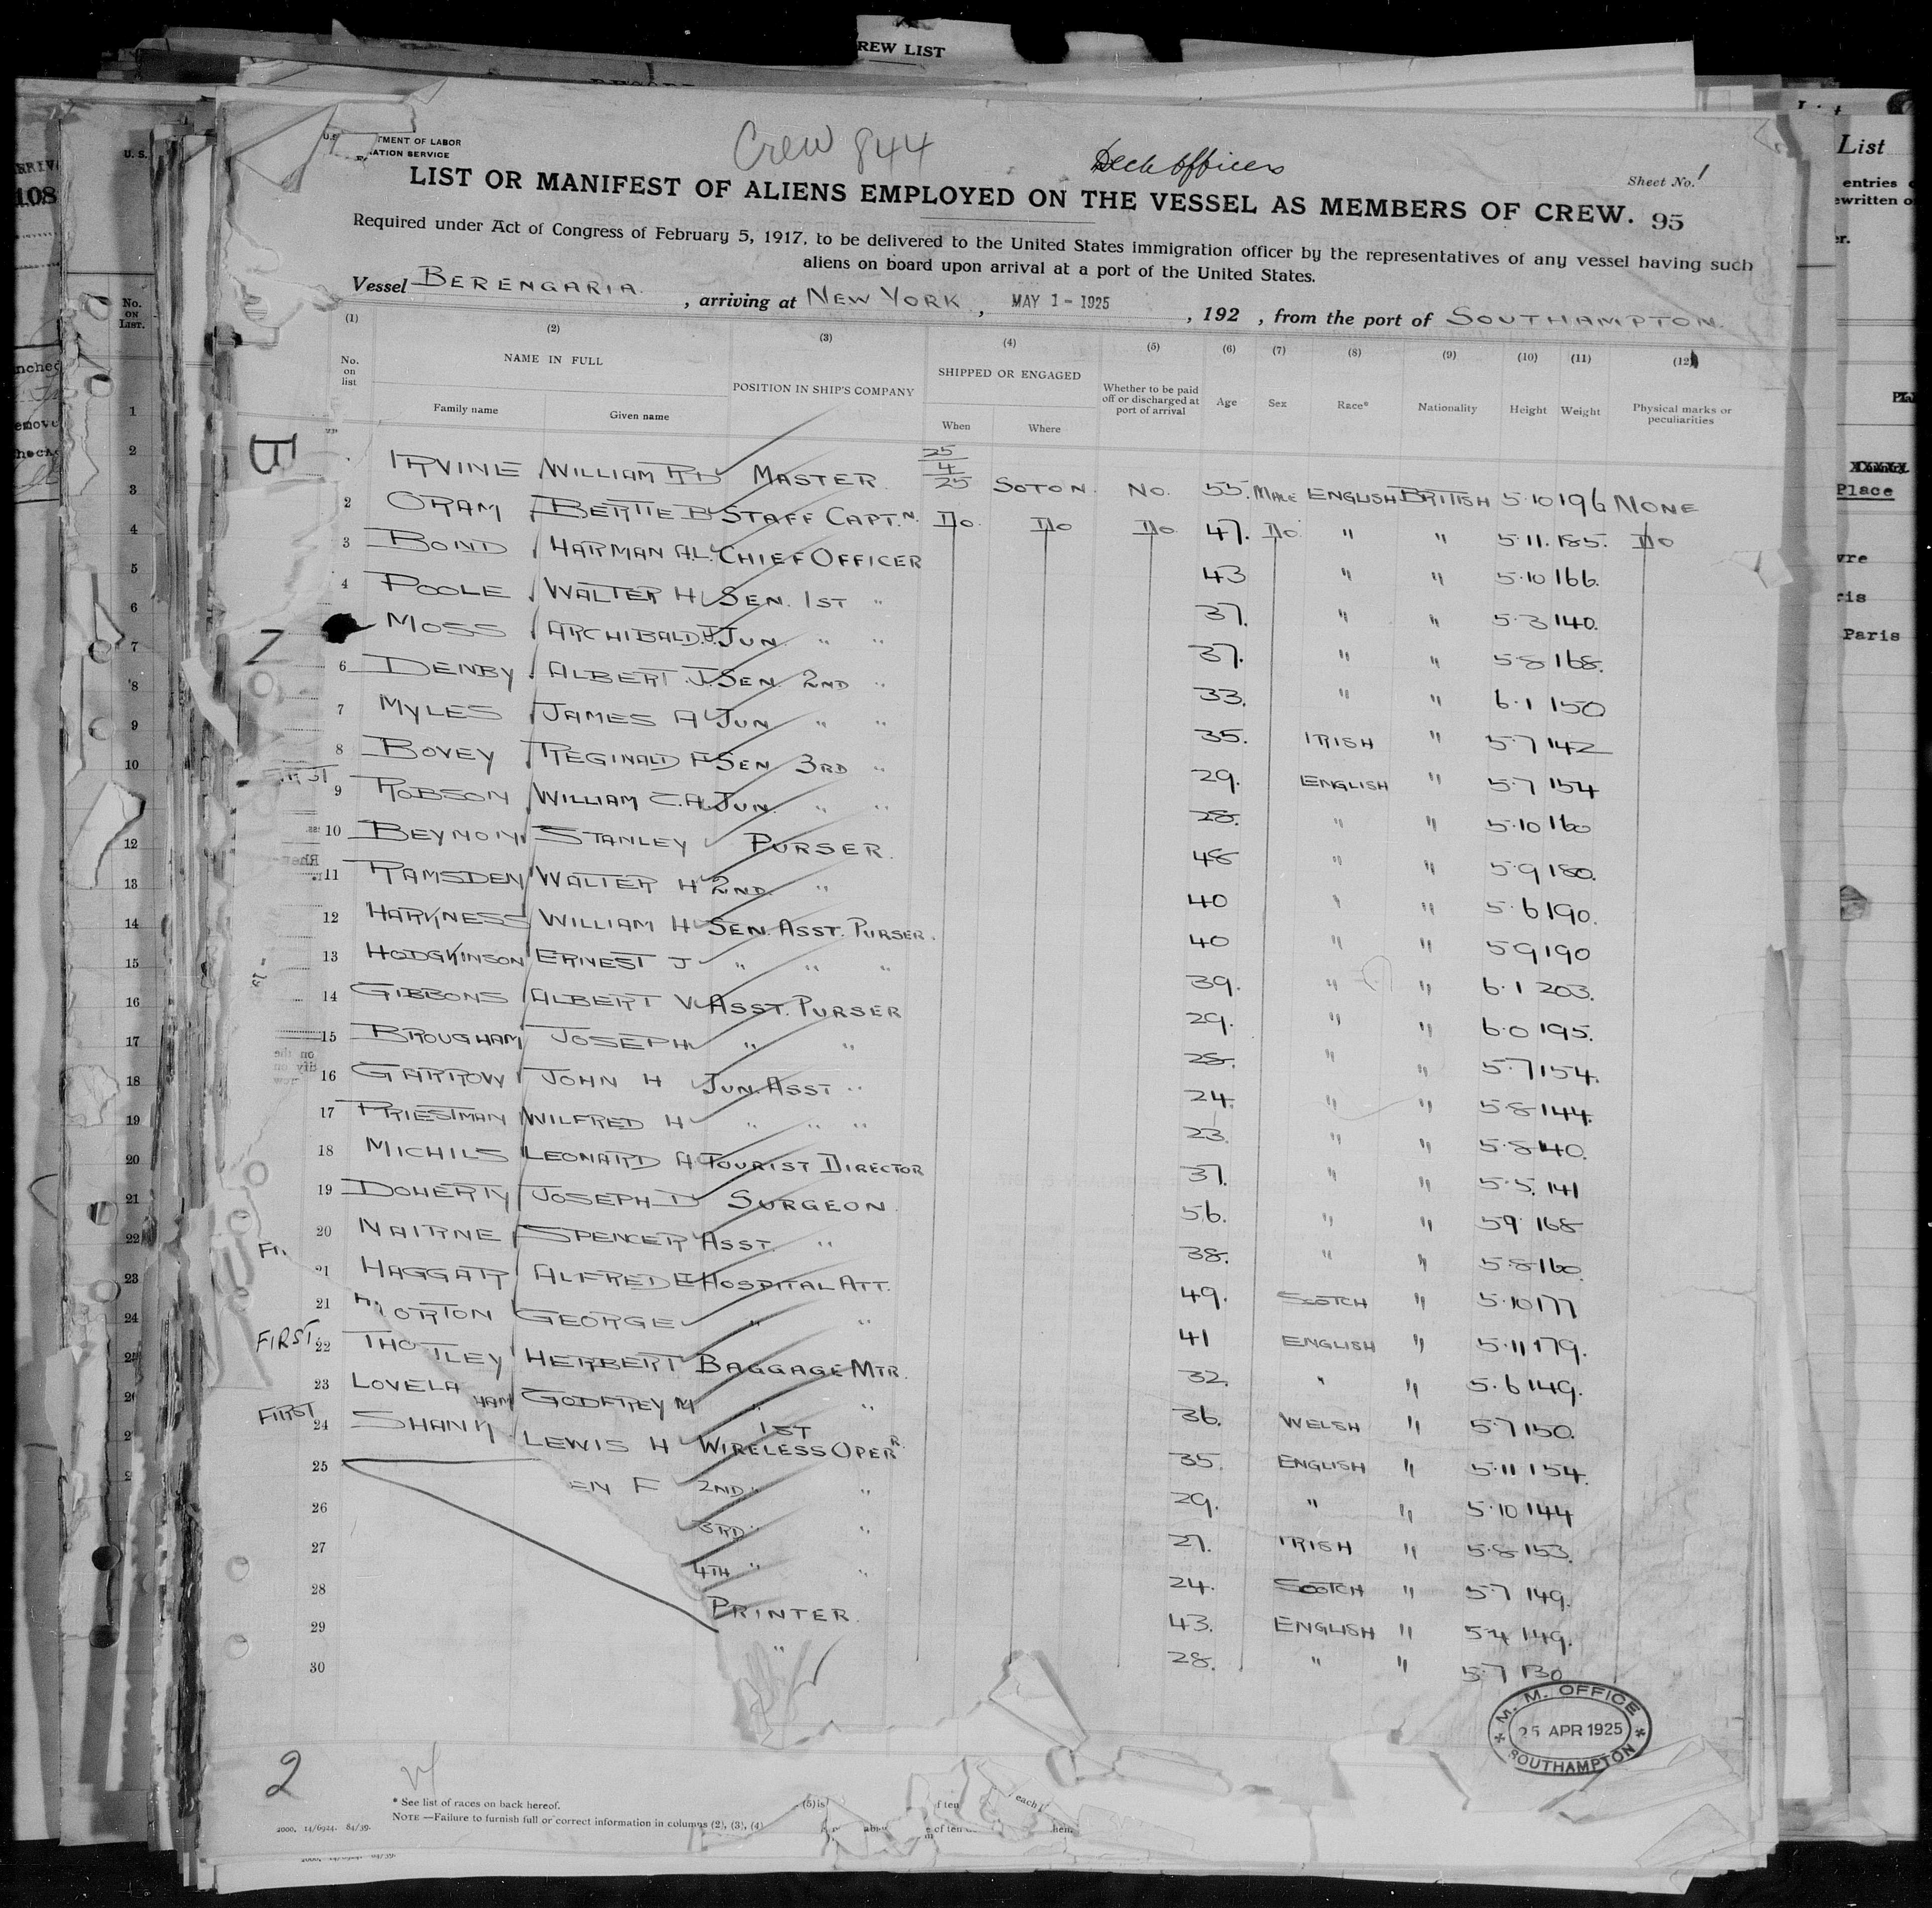 REW LIST
TMENT OF LABOR
ATION SERVICE
Crew 844
Deck Officers
Sheet No. 1
LIST OR MANIFEST OF ALIENS EMPLOYED ON THE VESSEL AS MEMBERS OF CREW. 95
Required under Act of Congress of February 5, 1917, to be delivered to the United States immigration officer by the representatives of any vessel having such
aliens on board upon arrival at a port of the United States.
Vessel BERENGARIA , arriving at NEW YORK , MAY 1 - 1925 , 192 , from the port of SOUTHAMPTON.
(1) (2) (3) (4) (5) (6) (7) (8) (9) (10) (11) (12)
No. on list NAME IN FULL Family name Given name POSITION IN SHIP'S COMPANY SHIPPED OR ENGAGED When Where Whether to be paid off or discharged at port of arrival Age Sex Race* Nationality Height Weight Physical marks or peculiarities
IRVINE WILLIAM RD MASTER 25/4/25 SOTON. NO. 55. MALE ENGLISH BRITISH 5.10 196 NONE
2 ORAM BERTIE B STAFF CAPTN. DO DO DO 47. DO " " 5.11. 185. DO
3 BOND HARMAN A.L. CHIEF OFFICER 43 " " 5.10 166.
4 POOLE WALTER H SEN. 1ST " 37. " " 5.3 140.
MOSS ARCHIBALD JUN. " " 37. " " 5.8 168.
6 DENBY ALBERT J. SEN. 2ND " 33. " " 6.1 150
7 MYLES JAMES A JUN " " 35. IRISH " 5.7 142
8 BOVEY REGINALD F SEN 3RD " 29. ENGLISH " 5.7 154
9 ROBSON WILLIAM C.A. JUN. " " 28. " " 5.10 160
10 BEYNON STANLEY PURSER. 48 " " 5.9 180.
11 RAMSDEN WALTER H 2ND. " 40 " " 5.6 190.
12 HARKNESS WILLIAM H SEN. ASST. PURSER. 40 " " 5.9 190
13 HODGKINSON ERNEST J " " " 39. " " 6.1 203.
14 GIBBONS ALBERT V ASST. PURSER 29. " " 6.0 195.
15 BROUGHAM JOSEPH " " 28. " " 5.7 154.
16 GARROW JOHN H JUN. ASST " 24. " " 5.8 144.
17 PRIESTMAN WILFRED H " " " 23. " " 5.8 140.
18 MICHILS LEONARD A TOURIST DIRECTOR 37. " " 5.5. 141
19 DOHERTY JOSEPH D SURGEON 56. " " 5.9 168
20 NAIRNE SPENCER ASST. " 38. " " 5.8 160.
21 HAGGAR ALFRED E HOSPITAL ATT. 49. SCOTCH " 5.10 177
21 ORTON GEORGE " " 41 ENGLISH " 5.11 179.
FIRST 22 THO TLEY HERBERT BAGGAGE MTR. 32. " " 5.6 149.
23 LOVELA HAM GODFREY M " " 36. WELSH " 5.7 150.
FIRST 24 SHANK LEWIS H 1ST WIRELESS OPERR. 35. ENGLISH " 5.11 154.
25 EN F 2ND " " 29. " " 5.10 144
26 3RD " " 27. IRISH " 5.8 153.
27 4TH " " 24. SCOTCH " 5.7 149.
28 PRINTER. 43. ENGLISH " 5.4 149.
29 " 28. " " 5.7 130
30
M. M. OFFICE
25 APR 1925
SOUTHAMPTON
2
* See list of races on back hereof.
NOTE —Failure to furnish full or correct information in columns (2), (3), (4)
(5) is
f ten
each
of ten
2000. 14/6924. 84/39.
U. S.
No. ON LIST.
1
2
3
4
5
6
7
8
9
10
12
13
14
15
16
17
18
19
20
21
22
23
24
108
List
entries
ewritten o
er.
Place
vre
ris
Paris